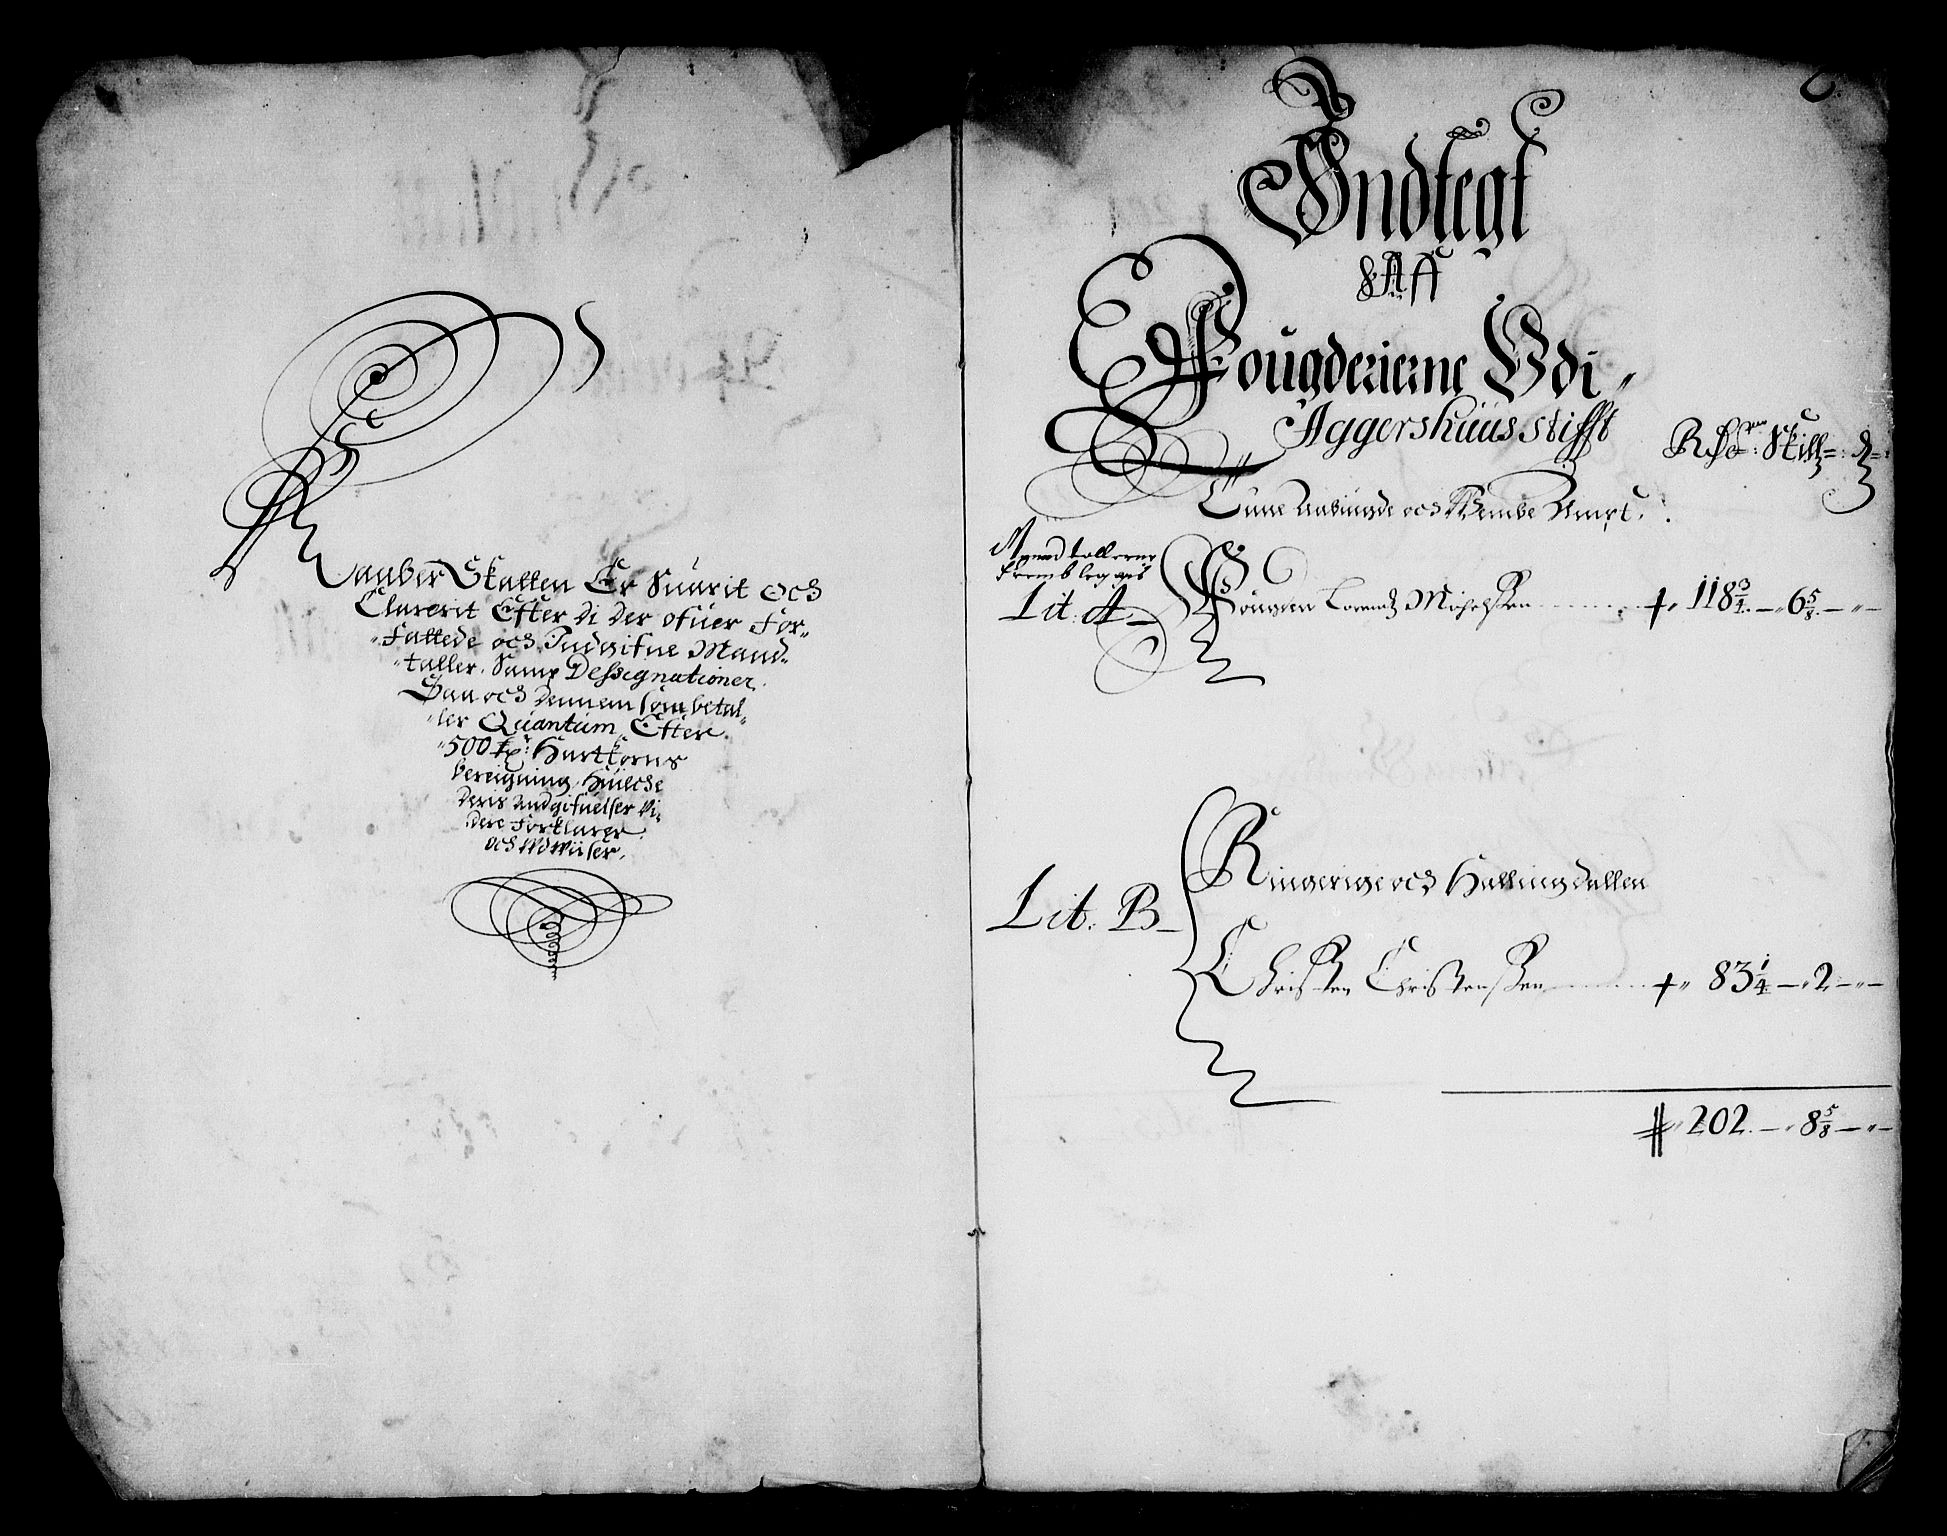 Kaaber Skatten Er Suarit och
Clarerit Efter di der ofuer For-
fattede och Indgifne Mand-
taller. Samp Dessignationer
Saa och dennem som betal-
ler Quantum Efter
500 tr. Hartkorns
bereigning, Huilche
deris Andgifuelser vi-
dere forklarer
och Udwiiser.
Indtegt
Paa
Fougderierne Udi
Aggershuus Stifft
Rdr. Skill d
Tune Aabiugde och Wembe Ampt.
Mandtallerne
frembleggis
Lit. A
Fougden Lorendz Michelsen 118 3/4 - 6 5/8 -
Ringerige och Hallingdallen
Lit. B
Christen Christensen 83 1/4 - 2 -
202 - 8 5/8 -